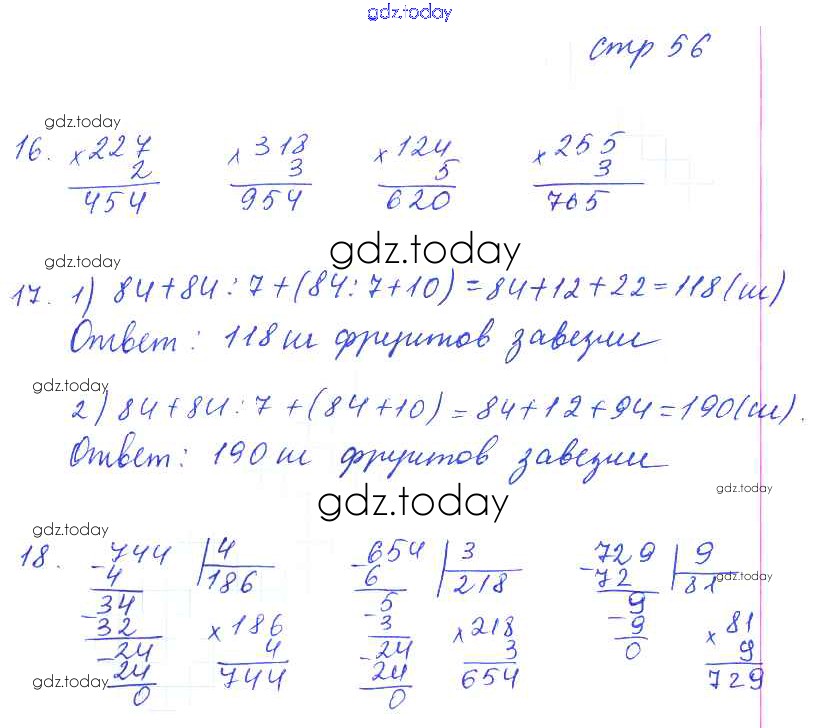 gdz.today
стр 56
gdz.today
16. × 227 × 318 × 124 × 255
2 3 5 3
454 954 620 765
gdz.today
gdz.today
17. 1) 84+84:7+(84:7+10)=84+12+22=118(ш)
Ответ: 118 ш фруктов завезли
gdz.today
2) 84+84:7+(84+10)=84+12+94=190(ш).
Ответ: 190 ш фруктов завезли
gdz.today
gdz.today
gdz.today
18. -744 | 4 -654 | 3 -729 | 9
4 186 6 218 72 81
gdz.today
-34 5 9
-32 × 186 -3 × 218 -9 × 81
-24 4 -24 3 0 9
24 744 24 654 729
gdz.today
0 0